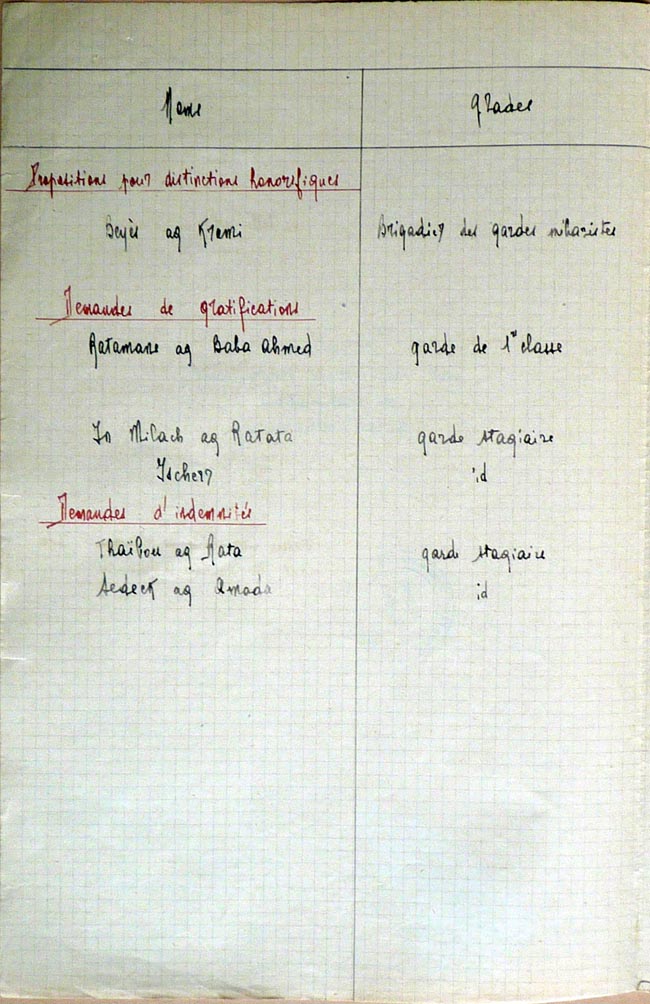 Noms Grades
Propositions pour distinctions honorifiques
Beyès ag Kremi Brigadier des gardes méharistes
Demandes de gratifications
Ratamane ag Baba Ahmed garde de 1re classe
In Milach ag Ratata garde stagiaire
Ischerr id
Demandes d'indemnités
Thaïbou ag Rata garde stagiaire
Sedeck ag Amada id